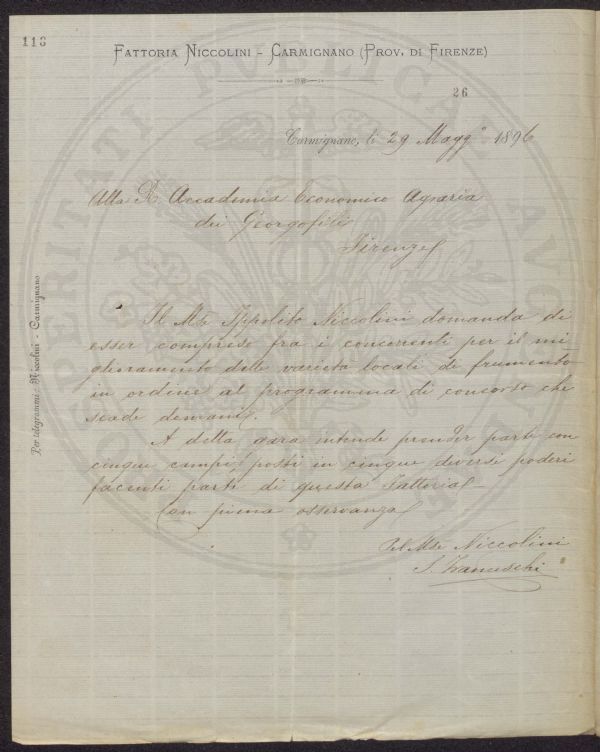 113
FATTORIA NICCOLINI - CARMIGNANO (PROV. DI FIRENZE)
26
Carmignano, li 29 Magg° 1896
Alla R. Accademia Economico Agraria
dei Georgofili
Firenze
Il Mse Ippolito Niccolini domanda di
esser compreso fra i concorrenti per il mi
glioramento delle varietà locali di frumento
in ordine al programma di concorso che
scade domani.
A detta gara intende prender parte con
cinque campi posti in cinque diversi poderi
facenti parte di questa Fattoria
Con piena osservanza
Pel Mse Niccolini
Per telegrammi: Niccolini - Carmignano
PROSPERITATI PUBLICAE AVG